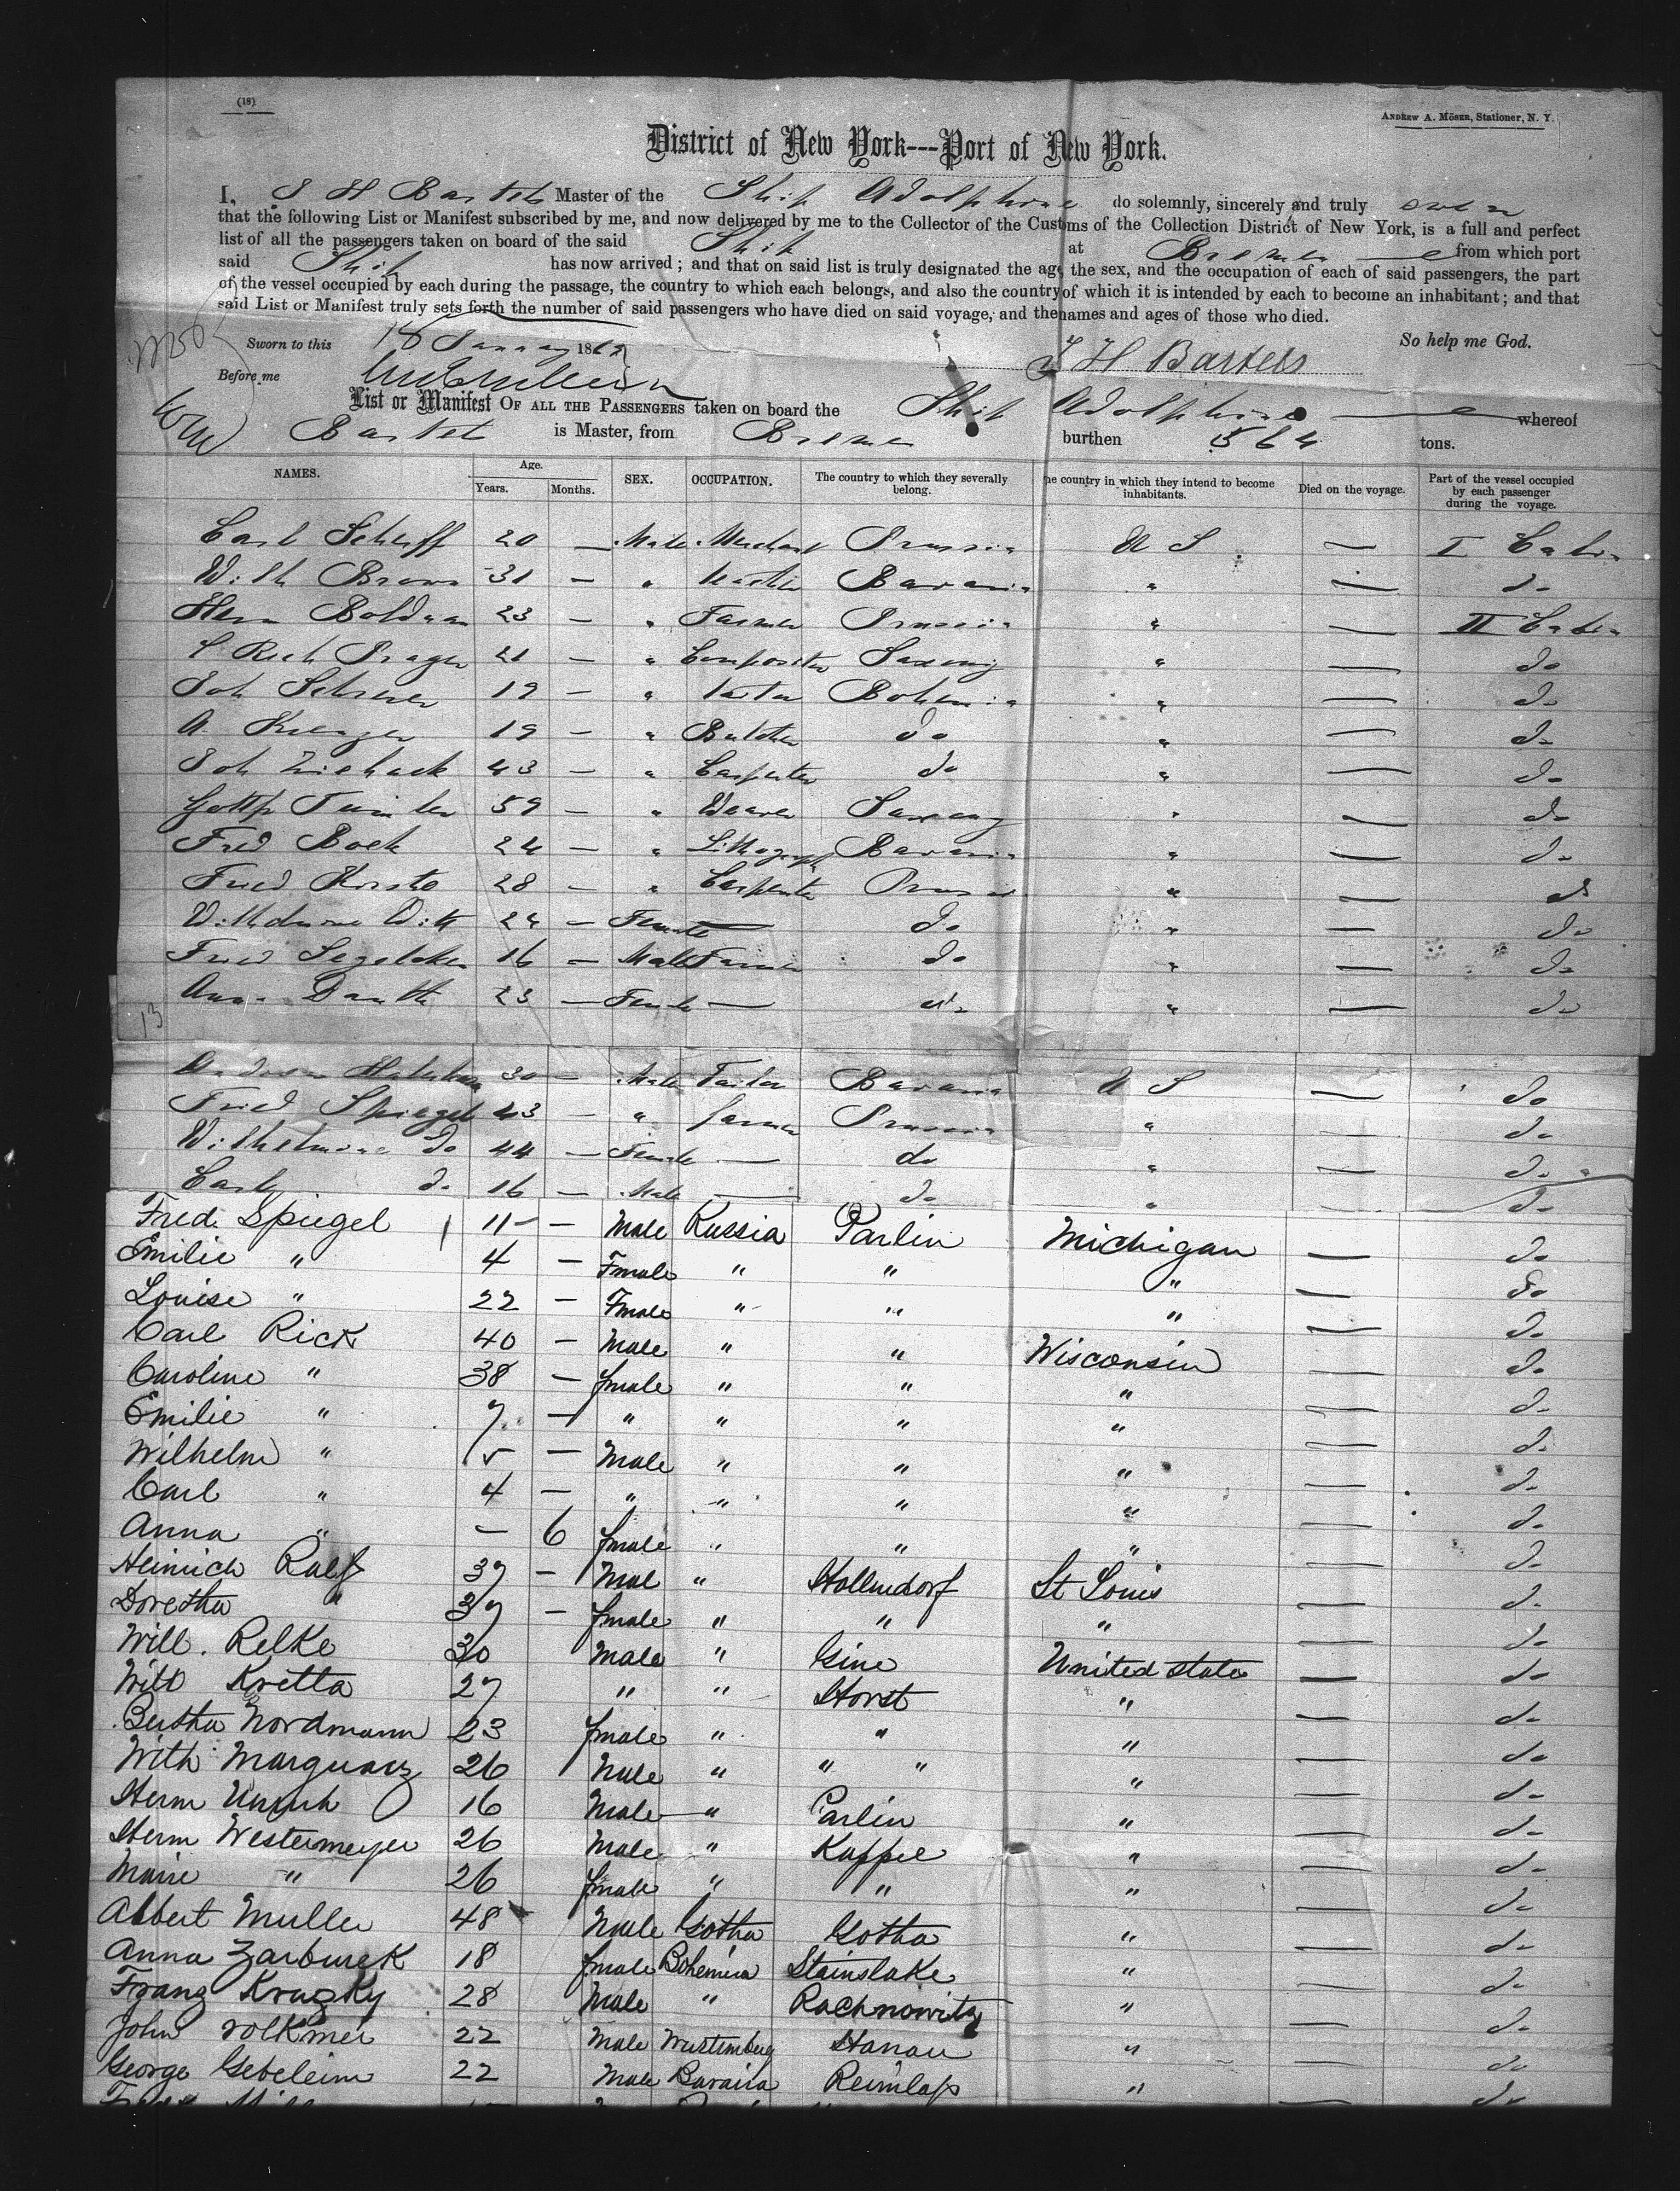 (18)
ANDREW A. MÖSER, Stationer, N. Y.
District of New York---Port of New York.
I, J H Bartels Master of the Ship Adolphine do solemnly, sincerely and truly swear
that the following List or Manifest subscribed by me, and now delivered by me to the Collector of the Customs of the Collection District of New York, is a full and perfect
list of all the passengers taken on board of the said Ship at Bremen from which port
said Ship has now arrived; and that on said list is truly designated the age the sex, and the occupation of each of said passengers, the part
of the vessel occupied by each during the passage, the country to which each belongs, and also the country of which it is intended by each to become an inhabitant; and that
said List or Manifest truly sets forth the number of said passengers who have died on said voyage, and the names and ages of those who died.
Sworn to this 18 January 186 So help me God.
Before me J H Bartels
List or Manifest OF ALL THE PASSENGERS taken on board the Ship Adolphine whereof
Bartels is Master, from Bremen burthen 564 tons.
NAMES. Age. Years. Months. SEX. OCCUPATION. The country to which they severally belong. he country in which they intend to become inhabitants. Died on the voyage. Part of the vessel occupied by each passenger during the voyage.
Carl Scheff 20 — Male Merchant Prussia U S — I Cabin
Wilh Brown 31 — " Bavaria " — do
Herm Boldman 23 — " Farmer Prussia " — II Cabin
C Rich Prager 21 — " Compositor Saxony " — do
Joh 19 — " Bohemia " — do
A. 19 — " Butcher do " — do
Joh 43 — " Carpenter do " — do
59 — " Weaver Saxony " — do
Fred Bock 24 — " Lithograph Bavaria " — do
Fried Horste 28 — " Carpenter Prussia " — do
Wilhelmine Witt 24 — Female — do " — do
Fried Segelcken 16 — Male Farmer do " — do
Anna Danth 23 — Female — do " — do
13
Andreas 30 — Male Tailor Bavaria U S — do
Fried Spiegel 43 — " farmer Prussia " — do
Wilhelmine do 44 — Female — do " — do
Carl do 16 — Male — do " do
Fred. Spiegel 11 — Male Russia Parlin Michigan — do
Emilie " 4 — Fmale " " " — do
Louise " 22 — Fmale " " " — do
Carl Rick 40 — Male " " Wisconsin — do
Caroline " 38 — fmale " " " — do
Emilie " 7 — " " " " — do
Wilhelm " 5 — Male " " " — do
Carl " 4 — " " " " — do
Anna " — 6 fmale " " " — do
Heinrich Ralf 37 — Mal " Hollindorf St Louis — do
Doretha " 37 — fmale " " " — do
Will. Relke 30 Male " Gine United state — do
Will Kretta 27 " " Horst " — do
Bertha Nordmann 23 fmale " " " — do
With Marquarz 26 Male " " " " — do
Herm Unruh 16 Male " Parlin " — do
Herm Westermeyer 26 Male " Kappel " — do
Marie " 26 fmale " " " — do
Albert Muller 48 Male Gotha Gotha " — do
Anna Zarburek 18 fmale Bohemia Stainslake " — do
Franz Krazky 28 Male " Rachnowitz " — do
John Volkmer 22 Male Wurtemberg Hanau " — do
George Gebelein 22 Male Bavaria Reimlaß " — do